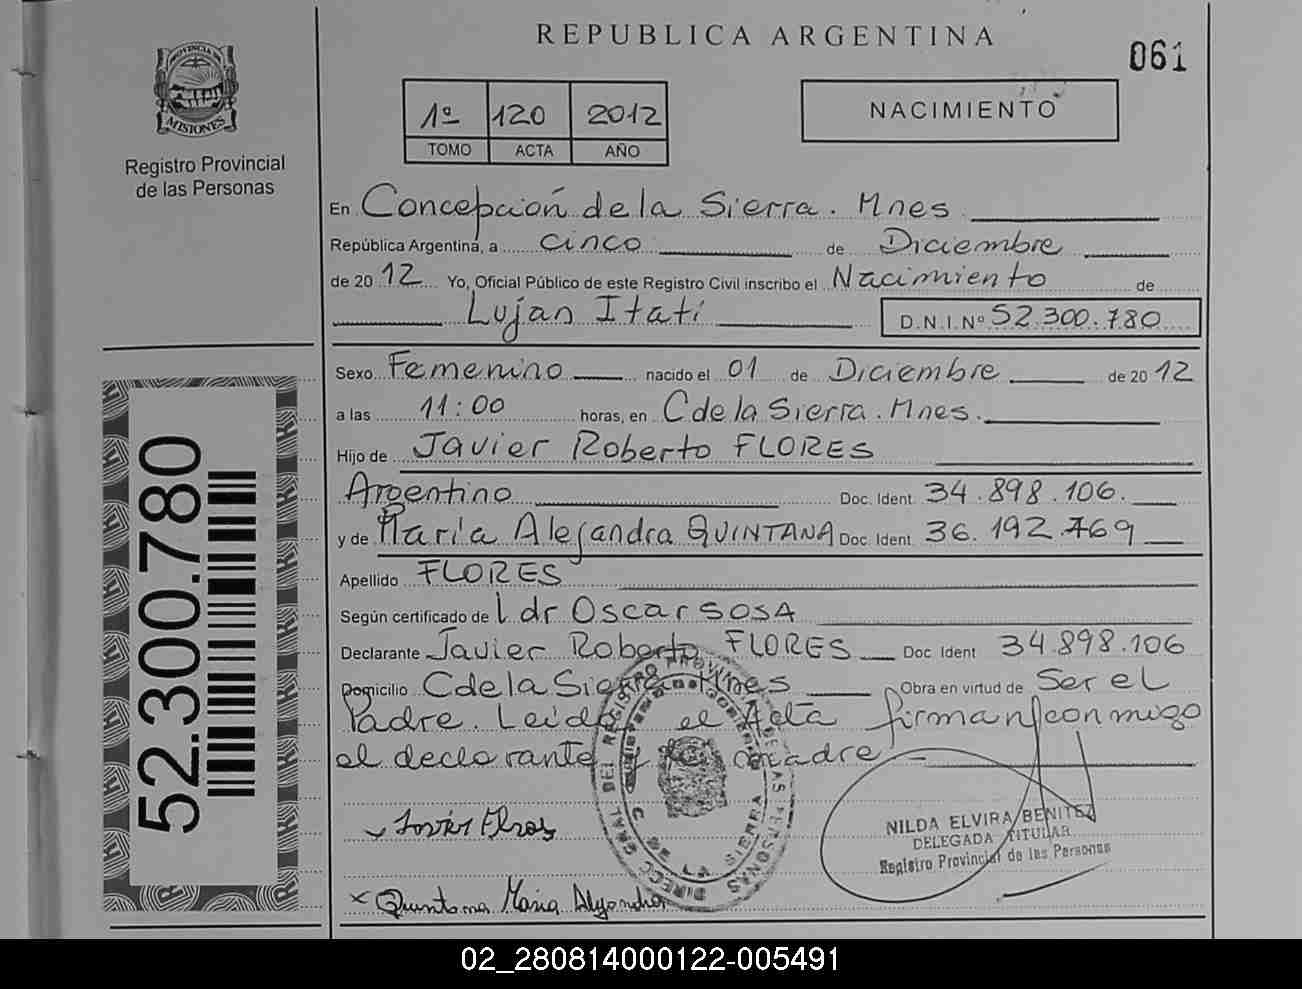 REPUBLICA ARGENTINA
061
PROVINCIA DE
MISIONES
Registro Provincial
de las Personas
1º 120 2012
TOMO ACTA AÑO
NACIMIENTO
En Concepción de la Sierra. Mnes
República Argentina, a cinco de Diciembre
de 2012 Yo, Oficial Público de este Registro Civil inscribo el Nacimiento de
Lujan Itatí D.N.I.Nº 52.300.780
Sexo Femenino nacido el 01 de Diciembre de 2012
a las 11:00 horas, en C de la Sierra. Mnes.
Hijo de Javier Roberto FLORES
Argentino Doc. Ident. 34.898.106.
y de María Alejandra QUINTANA Doc. Ident. 36.192.769
Apellido FLORES
Según certificado de dr Oscar SOSA
Declarante Javier Roberto FLORES Doc Ident 34.898.106
Domicilio C de la Sierra Mnes Obra en virtud de Ser el
Padre. Leida el Acta firman conmigo
el declarante y la madre
Javier Flores
NILDA ELVIRA BENITEZ
DELEGADA TITULAR
Registro Provincial de las Personas
x Quintana Maria Alejandra
DIRECC. GRAL DEL REGISTRO PROVINCIAL DE LAS PERSONAS
C DE LA SIERRA
52.300.780
02_280814000122-005491